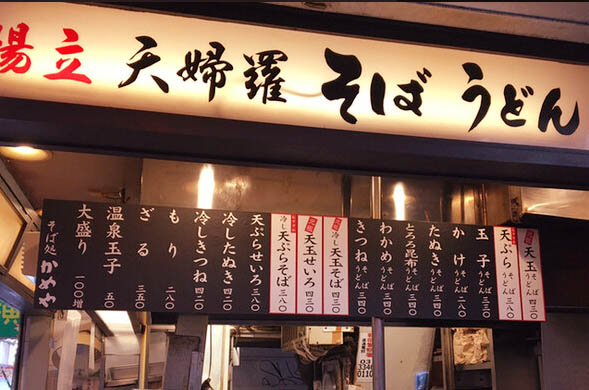 揚立 天婦羅 そば うどん
天玉 そば うどん 四三〇
天ぷら そば うどん 三八〇
玉子 そば うどん 三四〇
かけ そば うどん 二八〇
たぬき そば うどん 三四〇
とろろ昆布 そば うどん 三四〇
わかめ そば うどん 三四〇
きつね そば うどん 三四〇
冷し天玉そば 四三〇
天玉せいろ 四三〇
冷し天ぷらそば 三八〇
天ぷらせいろ 三八〇
冷したぬき 四二〇
冷しきつね 四二〇
もり 二八〇
ざる 三五〇
温泉玉子 五〇
大盛り 一〇〇増
そば処 かめや
03